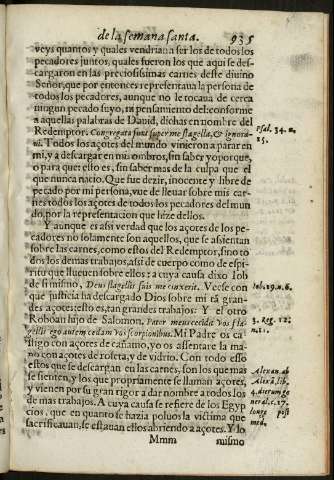 de la semana santa. 935
veys quantos y quales vendrian a ser los de todos los
pecadores juntos, quales fueron los que aqui se des-
cargaron en las preciosissimas carnes deste diuino
Señor, que por entonces representaua la persona de
todos los pecadores, aunque no le tocaua de cerca
ningun pecado suyo, ni pensamiento del: conforme
a aquellas palabras de Dauid, dichas en nombre del
Redemptor. Congregata sunt super me flagella, & ignora-
ui. Todos los açotes del mundo vinieron a parar en
mi, y a descargar en mis ombros, sin saber yo porque,
o para que: esto es, sin saber mas de la culpa que el
que nunca nacio. Que fue dezir, inocente y libre de
pecado por mi persona, vue de lleuar sobre mis car-
nes todos los açotes de todos los pecados del mun
do, por la representacion que hize dellos.
Y aunque es assi verdad que los açotes de los pe-
cadores no solamente son aquellos, que se assientan
sobre las carnes, como estos del Redemptor, sino to
dos los demas trabajos, assi de cuerpo como de espi-
ritu que llueuen sobre ellos: a cuya causa dixo Iob
de si mismo, Deus flagellis suis me contexit. Veese con
que justicia ha descargado Dios sobre mi tã gran-
des açotes: esto es, tan grandes trabajos: Y el otro
Roboan hijo de Salomon. Pater meus cecidit vos fla-
gellis ego autem cedam vos scorpionibus. Mi Padre os ca-
stigo con açotes de cañamo, yo os assentare la ma-
no con açotes de roseta, y de vidrio. Con todo esso
estos que se descargan en las carnes, son los que mas
se sienten, y los que propriamente se llaman açotes,
y vienen por su gran rigor a dar nombre a todos los
de mas trabajos. A cuya causa se refiere de los Egyp
cios, que en quanto se hazia poluos la victima que
sacrificauan, se estauan ellos abriendo a açotes. Y lo
Mmm mismo
Psal. 34. n.
15.
Iob. 19. n. 6.
3. Reg. 12.
n. 11.
Alexan. ab
Alexã. lib.
4. dierum ge
neral. c. 17.
longe post
med.